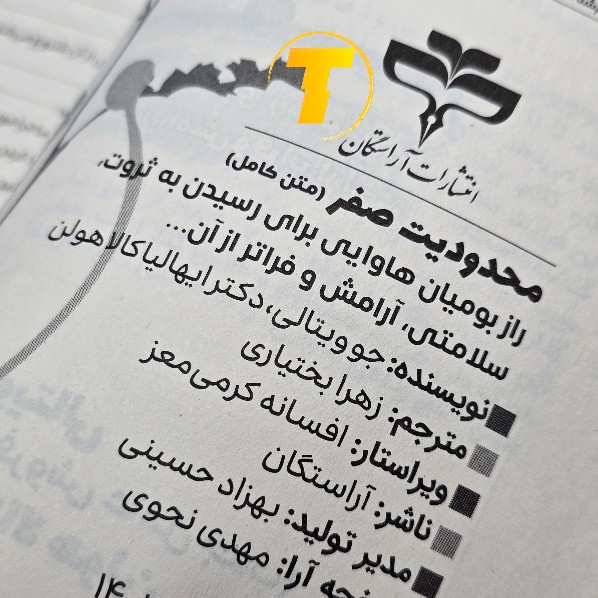 انتشارات آراستگان
محدودیت صفر (متن کامل)
راز بومیان هاوایی برای رسیدن به ثروت،
سلامتی، آرامش و فراتر از آن...
نویسنده: جو ویتالی، دکتر ایهالیاکالا هولن
مترجم: زهرا بختیاری
ویراستار: افسانه کرمی‌معز
ناشر: آراستگان
مدیر تولید: بهزاد حسینی
صفحه آرا: مهدی نحوی